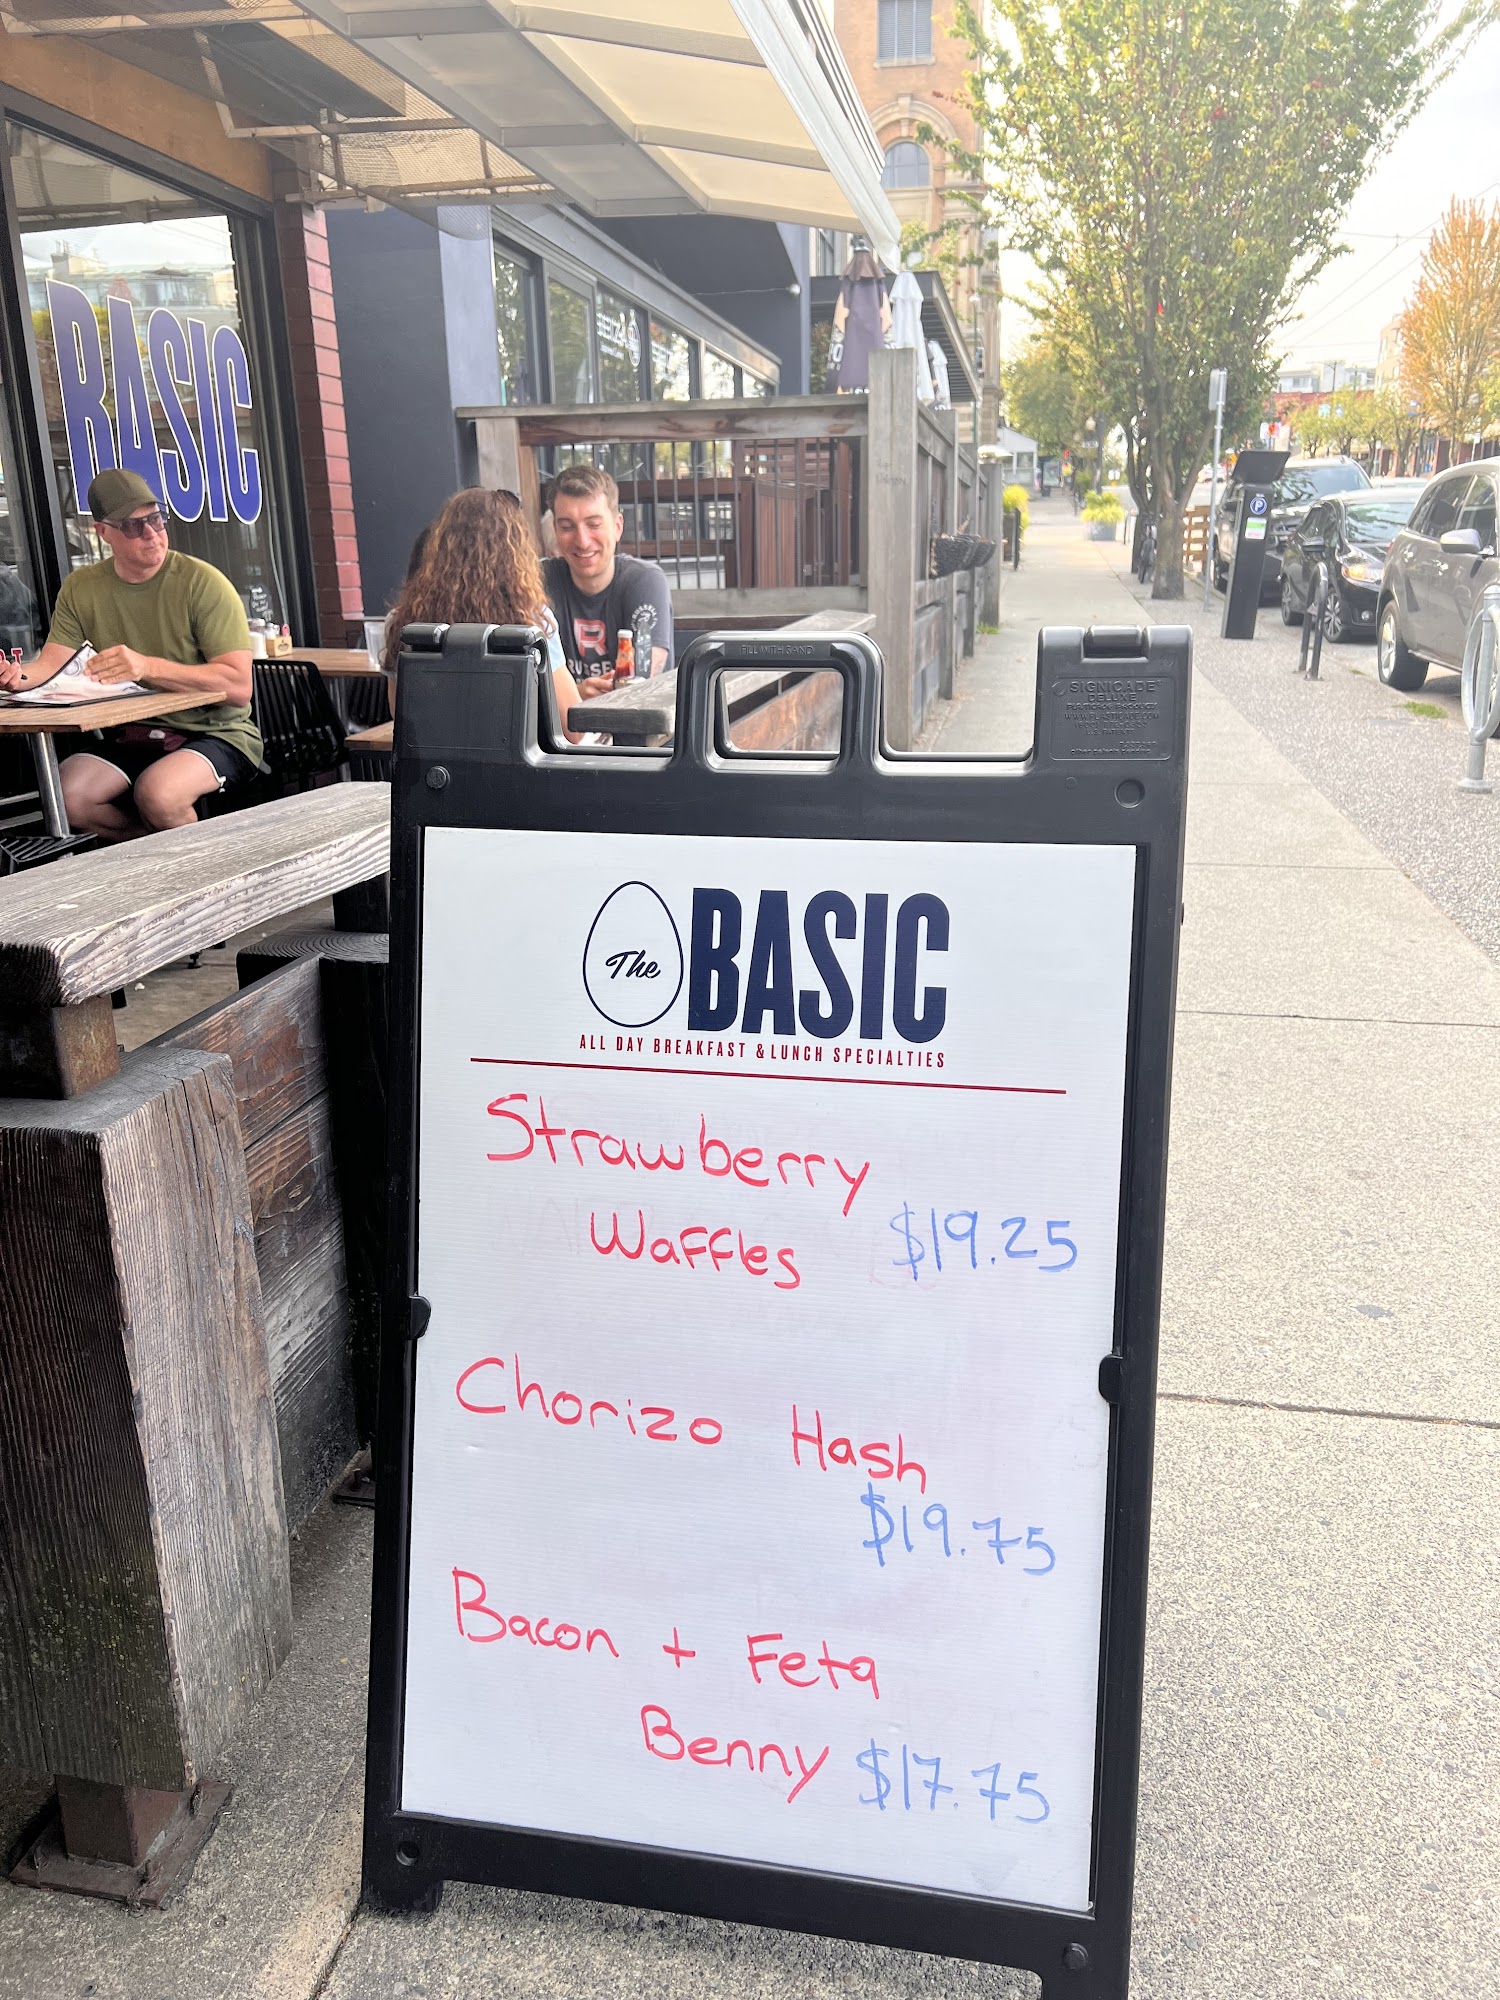 BASIC
FILL WITH SAND
SIGNICADE
DELUXE
The BASIC
ALL DAY BREAKFAST & LUNCH SPECIALTIES
Strawberry
Waffles $19.25
Chorizo Hash
$19.75
Bacon + Feta
Benny $17.75